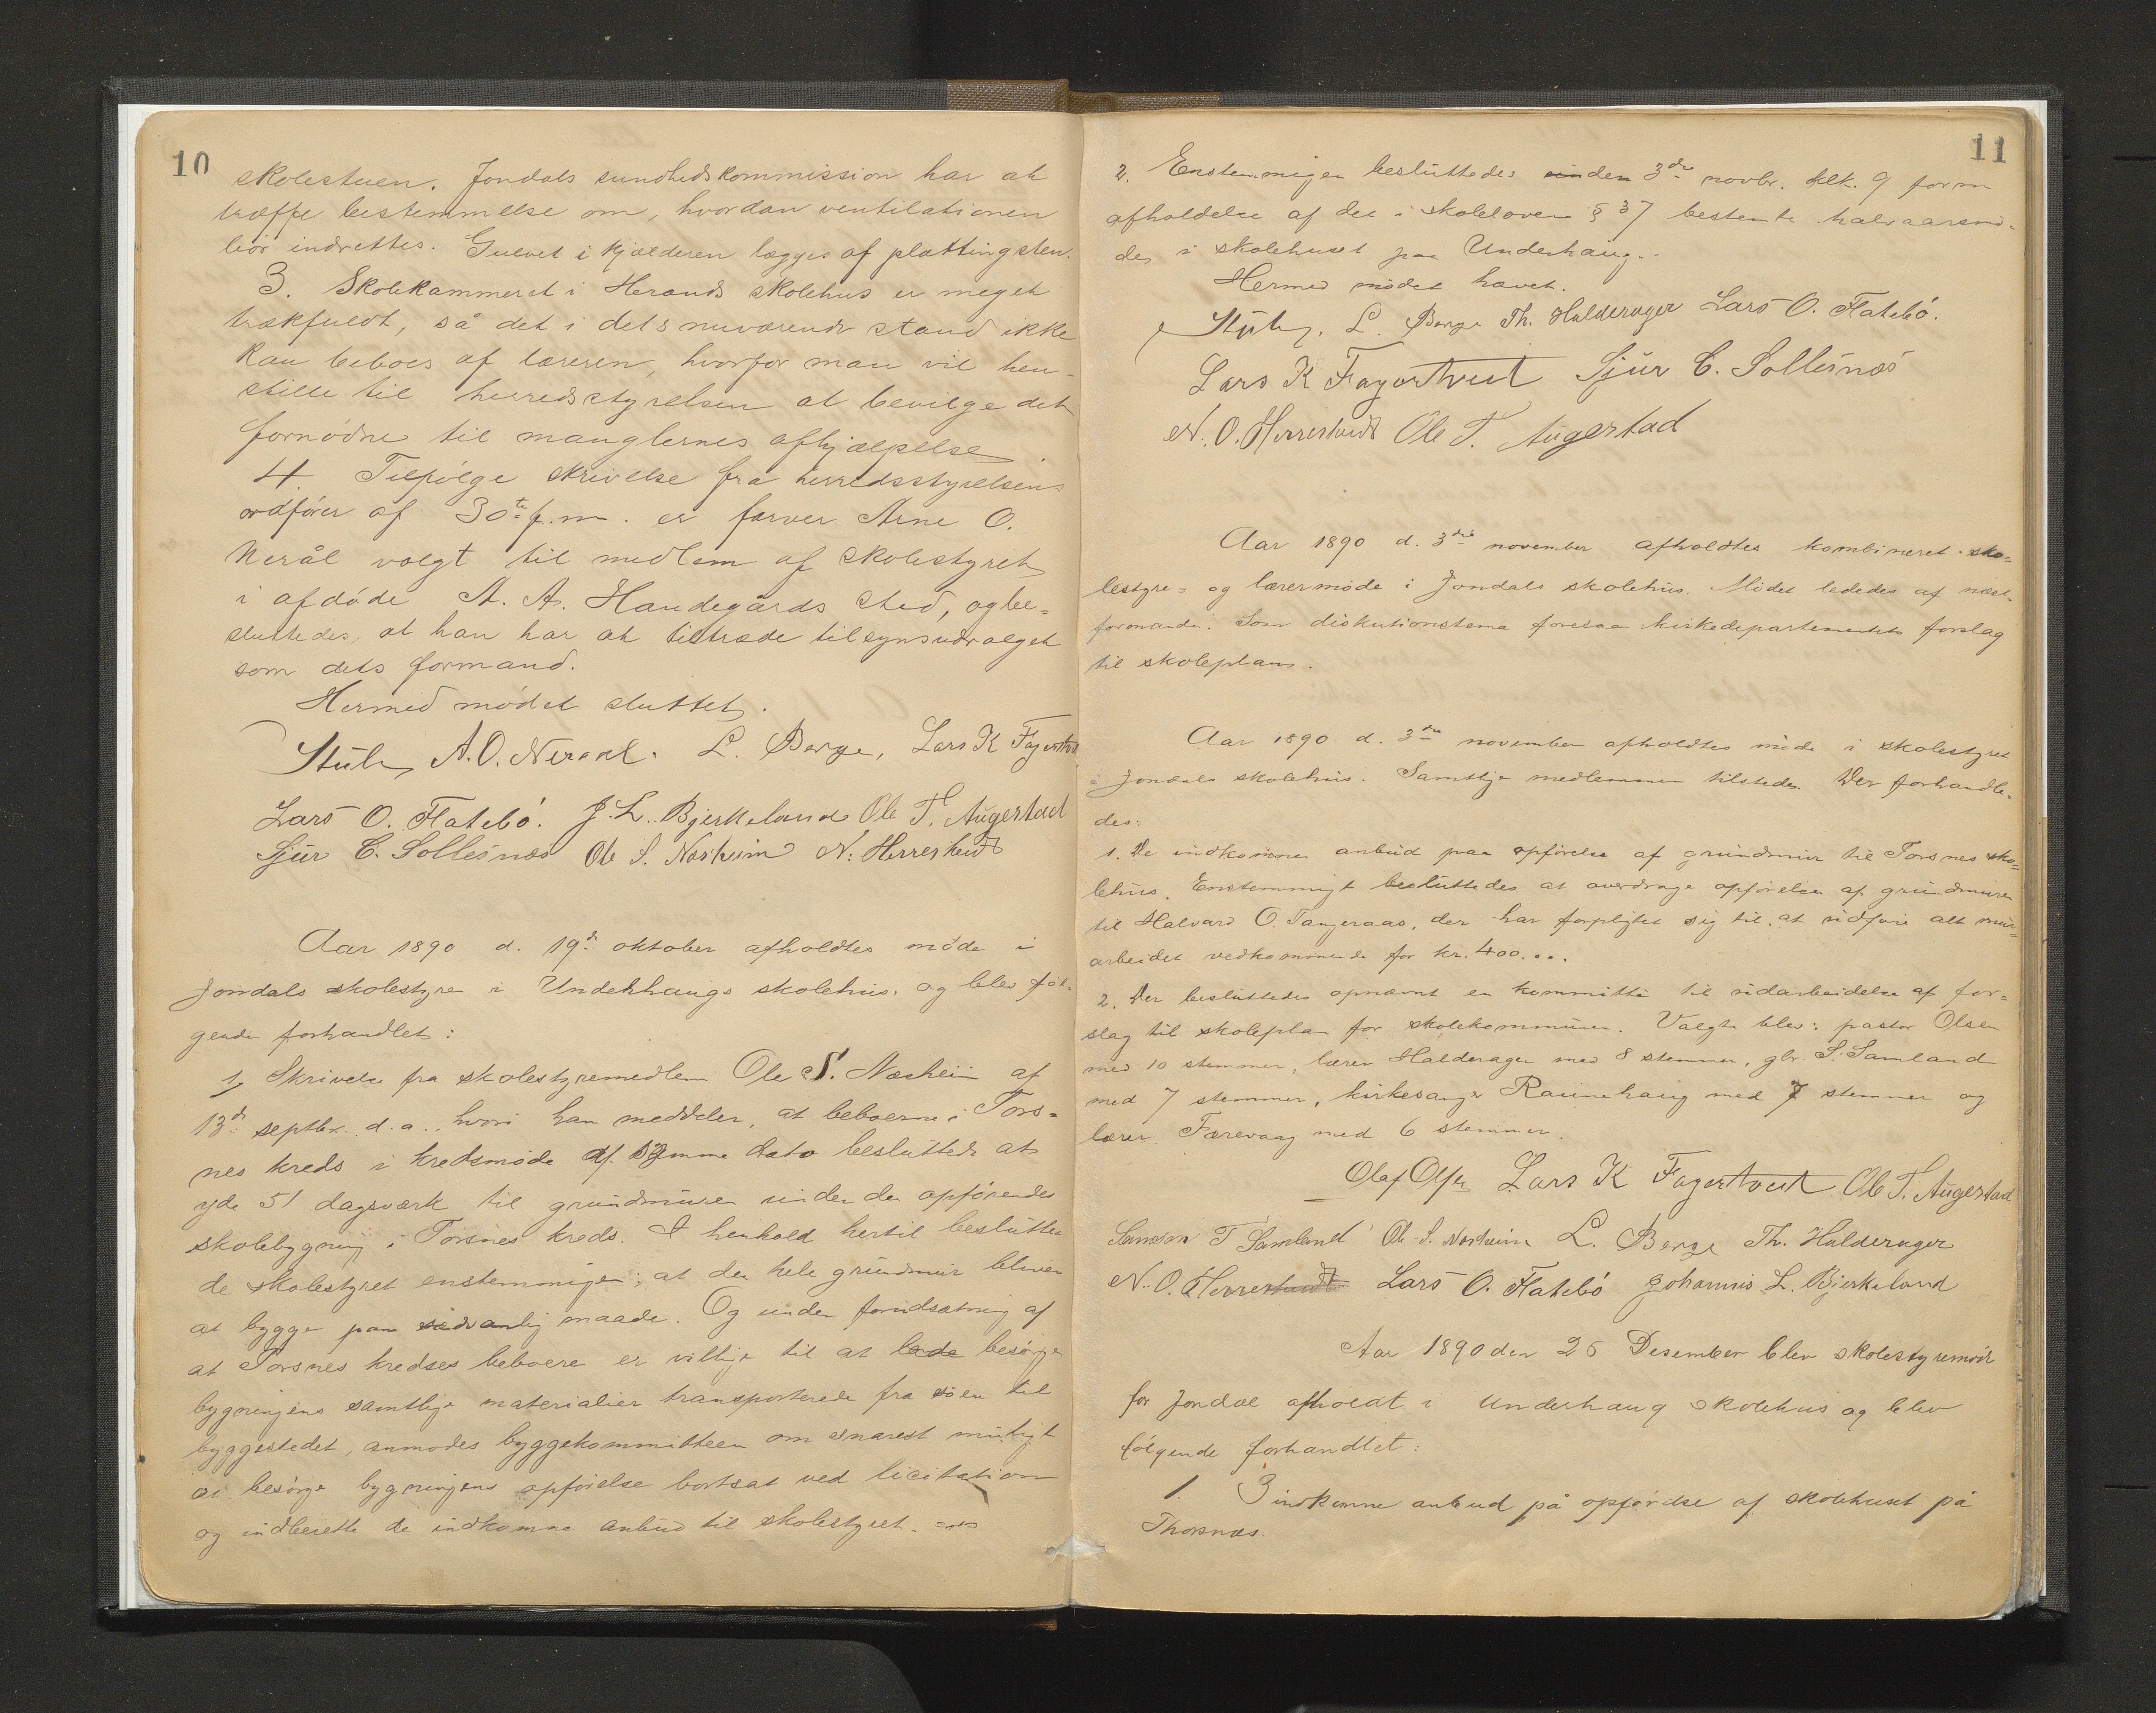 10
skolestuen. Jondals sundhedskommission har at
træffe bestemmelse om, hvordan ventilationen
bör indrettes. Gulvet i kjælderen lægges af plattingsten.
3. Skolekammeret i Herands skolehus er meget
trækfuldt, så det i dets nuværende stand ikke
kan beboes af læreren, hvorfor man vil hen-
stille til herredsstyrelsen at bevilge det
fornödne til manglernes afhjælpelse.
4. Tilfölge skrivelse fra herredsstyrelsens
ordförer af 30te f.m. er farver Arne O.
Nerål valgt til medlem af skolestyret
i afdöde A. A. Handegårds sted, og be-
sluttedes, at han har at tiltræde tilsynsudvalget
som dets formand.
Hermed mödet sluttet.
A. O. Neraal. L. Berge, Lars K Fagertvet
Lars O. Flatebö. J. L. Bjerkeland Ole T. Augestad
Sjur C. Sollesnæs Ole S. Næsheim N. Herrestvedt
Aar 1890 d. 19de oktober afholdtes möde i
Jondals skolestyre i Underhaugs skolehus, og blev föl-
gende forhandlet:
1, Skrivelse fra skolestyremedlem Ole S. Næsheim af
13de septbr. d. a., hvori han meddeler, at beboerne i Tors-
nes kreds i kredsmöde af samme dato besluttede at
yde 51 dagsværk til grundmuren under den opförendes
skolebygning i Torsnes kreds. I henhold hertil beslutte-
de skolestyret enstemmigen: at den hele grundmur bliver
at bygge paa sædvanlig maade. Og under forudsætning af
at Torsnes kredses beboere er villige til at lade besörge
bygningens samtlige materialier transporterede fra söen til
byggestedet, anmodes byggekommitteen om snarest muligt
at besörge bygningens opförelse bortsat ved licitation
og indberette de indkomne anbud til skolestyret.
11
2. Enstemmigen besluttedes den 3die novbr. klk. 9 form
afholdelse af det i skoleloven § 37 bestemte halvaarsmö-
de i skolehuset paa Underhaug.
Hermed mödet hævet.
L. Berge Th. Halderager Lars O. Flatebö.
Lars K Fagertveit Sjur C. Sollesnæs
N. O. Herrestvedt Ole T. Augestad
Aar 1890 d. 3die november afholdtes kombineret sko-
lestyre- og lærermöde i Jondals skolehus. Mödet lededes af næst-
formanden. Som diskutionstema forelaa kirkedepartementets forslag
til skoleplan.
Aar 1890 d. 3die november afholdtes möde i skolestyret
i Jondals skolehus. Samtlige medlemmer tilstede. Der forhandle-
des:
1. De indkomne anbud paa opförelse af grundmur til Torsnes sko-
lehus. Enstemmigt besluttedes at overdrage opförelsen af grundmuren
til Halvard O. Tangeraas, der har forpligtet sig til at udföre alt mur-
arbeidet vedkommende for kr. 400...
2. Der besluttedes opnævnt en kommitte til udarbeidelse af for-
slag til skoleplan for skolekommunen. Valgte blev: pastor Olsen
med 10 stemmer, lærer Halderager med 8 stemmer, gbr. S. Samland
med 7 stemmer, kirkesanger Raunehaug med 7 stemmer og
lærer Færevaag med 6 stemmer.
Olaf Olsen Lars K Fagertveit Ole T. Augestad
Samson T Samland Ole S. Næsheim L. Berge Th. Halderager
N. O. Herrestvedt Lars O. Flatebö Johannis L. Bjerkeland
Aar 1890 den 26 Desember blev skolestyremöde
for Jondal afholdt i Underhaug skolehus og blev
fölgende forhandlet:
1. 3 indkomne anbud på opförelse af skolehuset på
Thorsnæs.